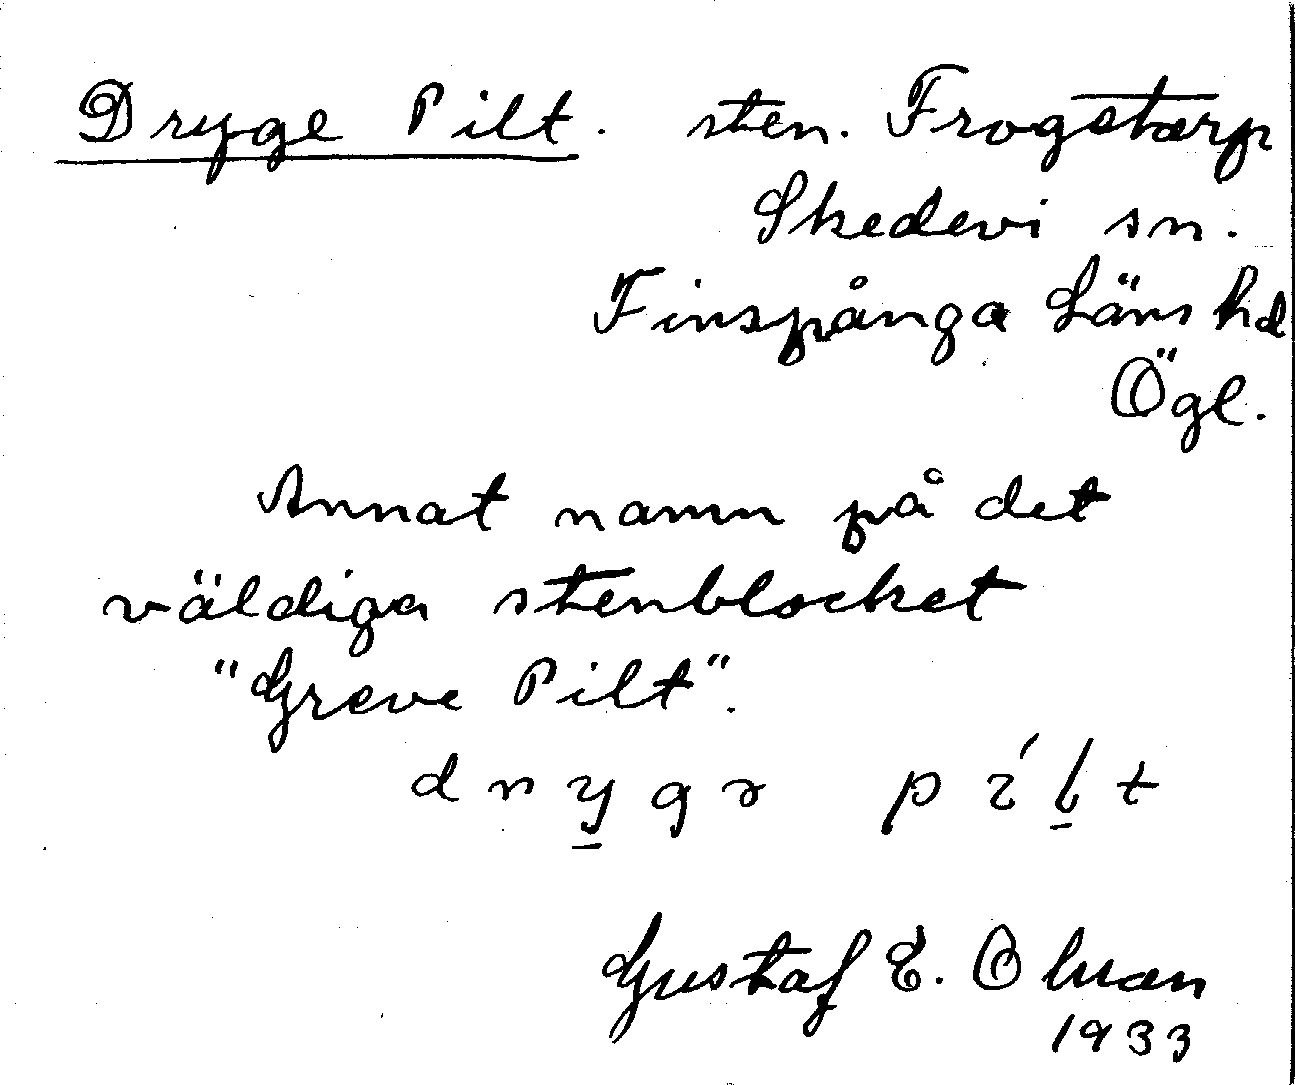 Dryge Pilt. sten. Frogstorp
Skedevi sn.
Finspånga Läns hd
Ögl.
Annat namn på det
väldiga stenblocket
"Greve Pilt".
Gustaf E.
1933